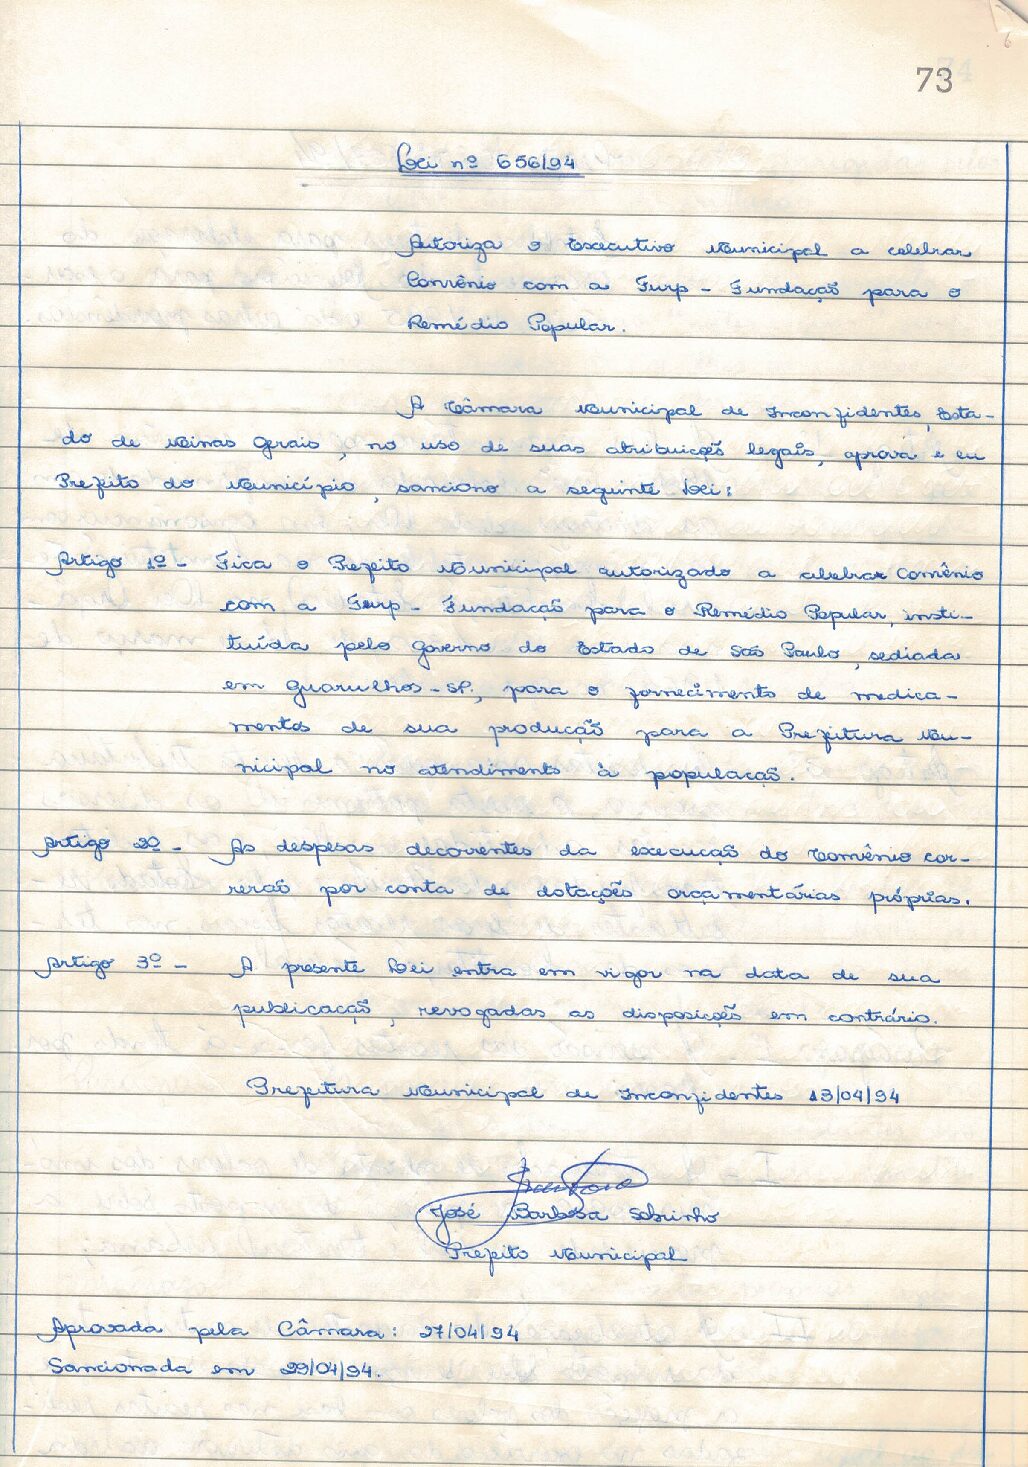 73
Lei nº 656/94
Autoriza o Executivo Municipal a celebrar
Convênio com a Furp - Fundação para o
Remédio Popular.
A Câmara Municipal de Inconfidentes, Esta-
do de Minas Gerais, no uso de suas atribuições legais, aprova e eu
Prefeito do Município, sanciono a seguinte Lei:
Artigo 1º - Fica o Prefeito Municipal autorizado a celebrar Convênio
com a Furp - Fundação para o Remédio Popular, insti-
tuída pelo Governo do Estado de São Paulo, sediada
em Guarulhos - SP, para o fornecimento de medica-
mentos de sua produção para a Prefeitura Mu-
nicipal no atendimento à população.
Artigo 2º - As despesas decorrentes da execução do Convênio cor-
rerão por conta de dotações orçamentárias próprias.
Artigo 3º - A presente Lei entra em vigor na data de sua
publicação, revogadas as disposições em contrário.
Prefeitura Municipal de Inconfidentes 13/04/94
José Barbosa Sobrinho
Prefeito Municipal
Aprovada pela Câmara: 27/04/94
Sancionada em 29/04/94.